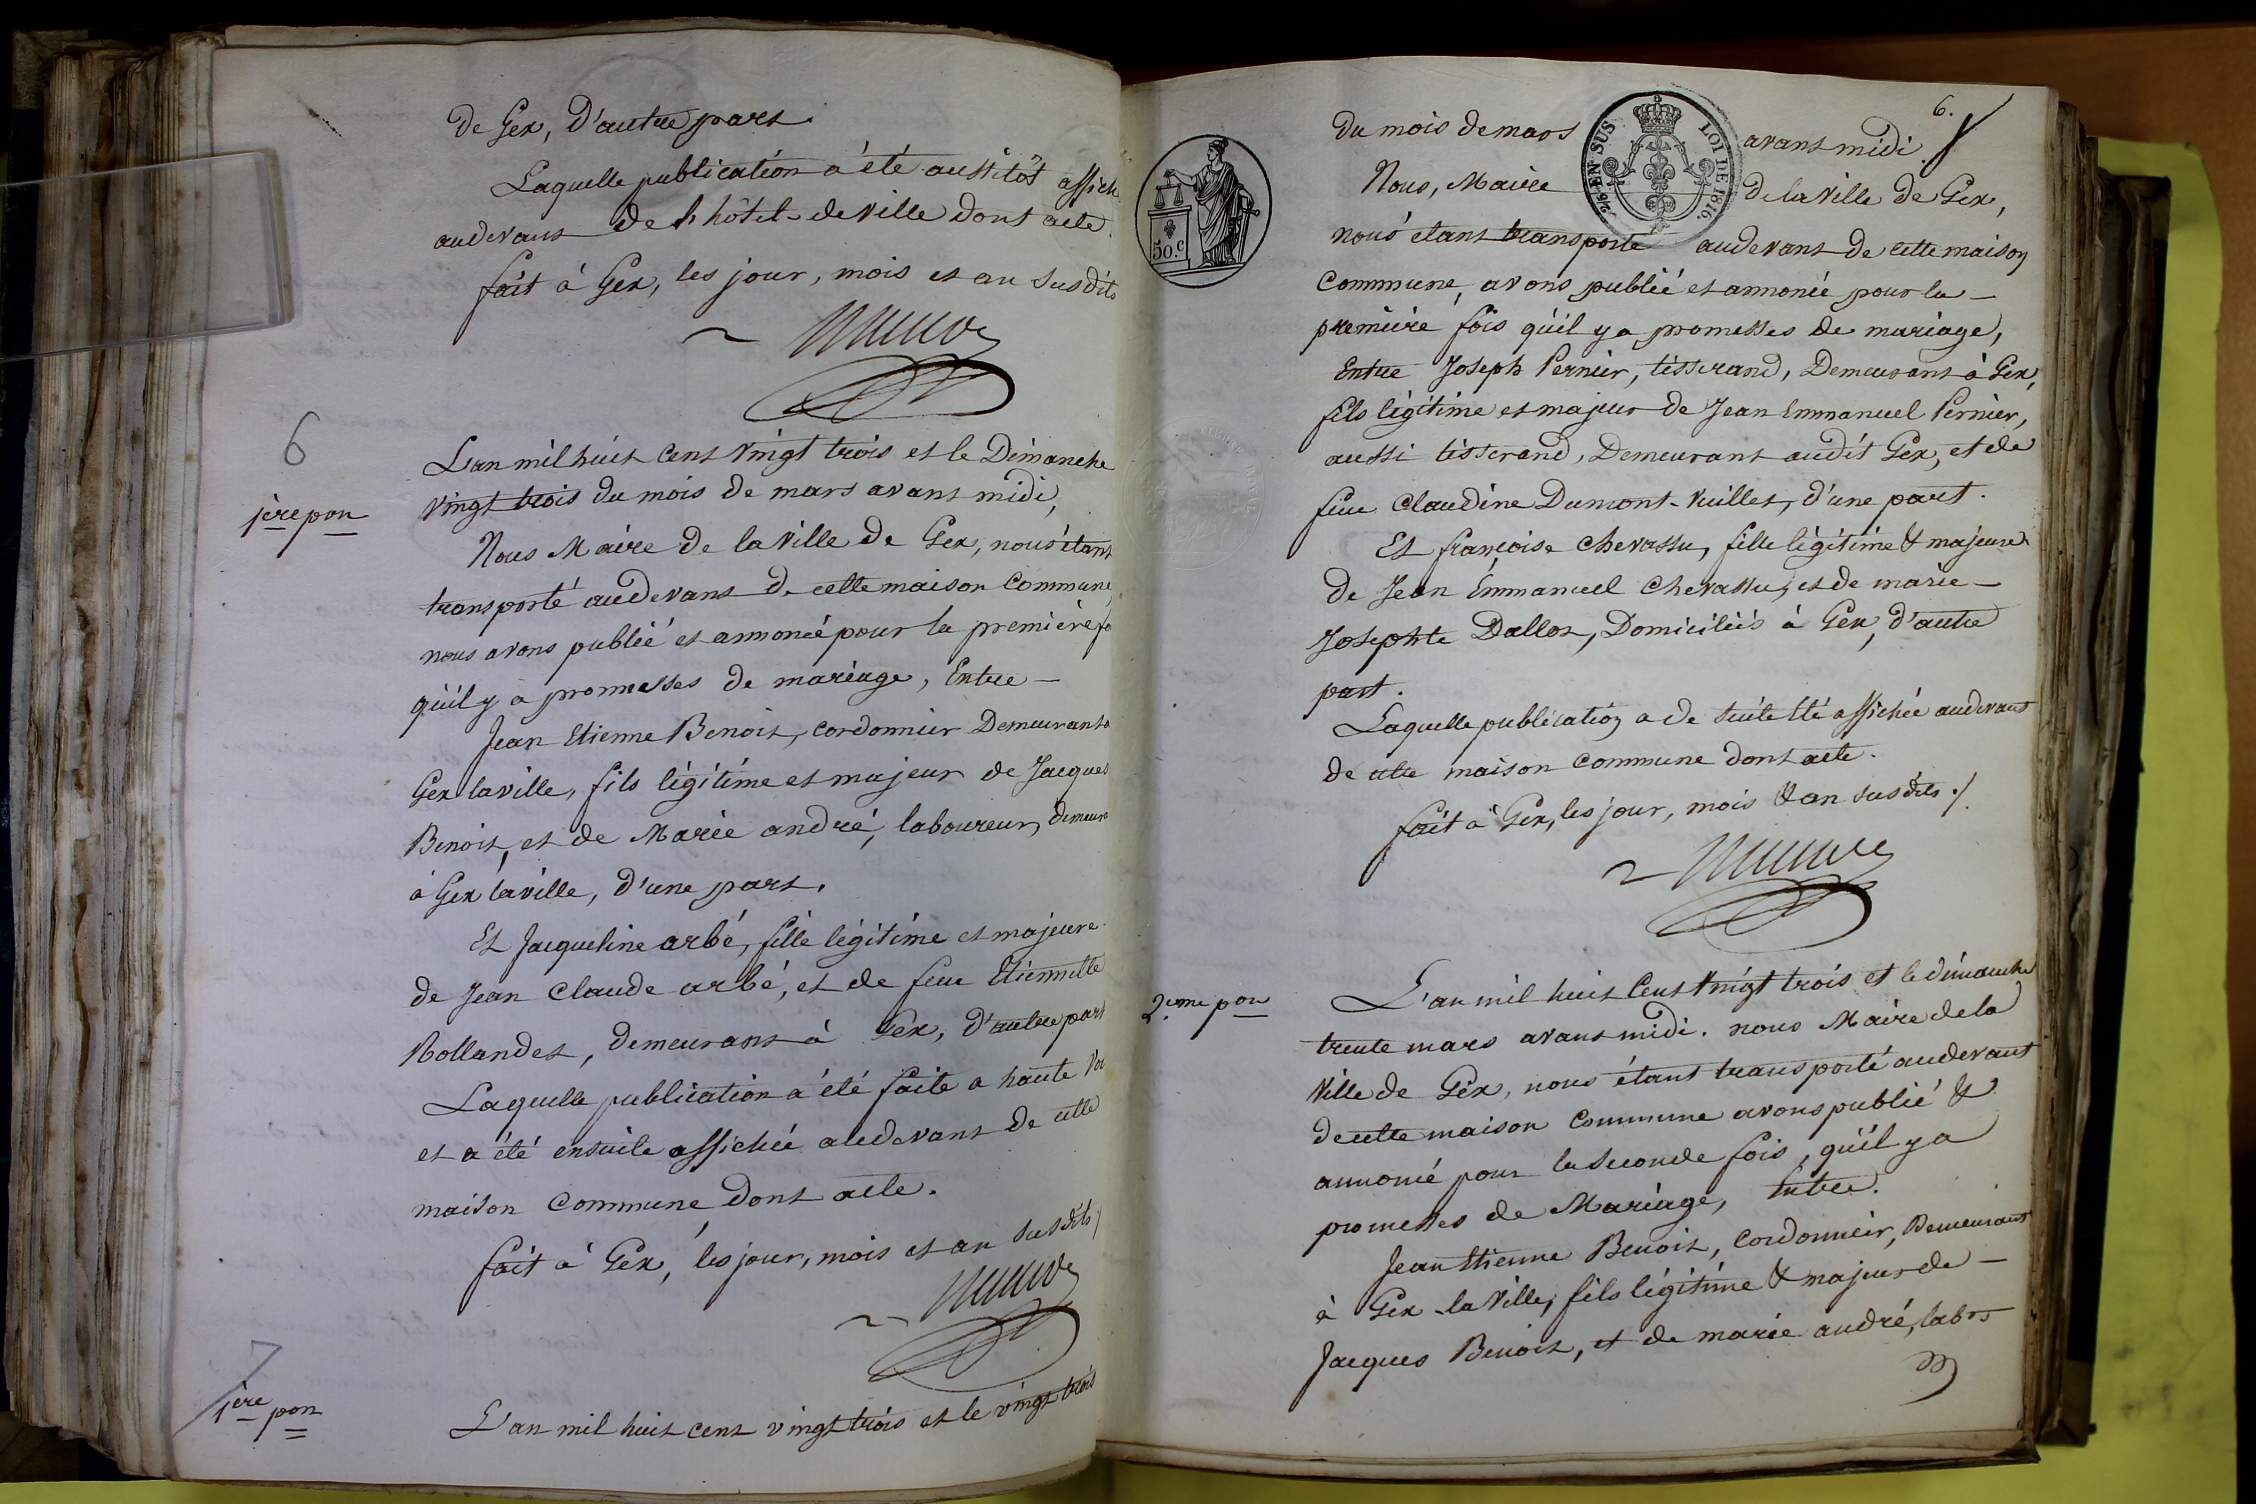 de Gex, d'autre part.
Laquelle publication a été aussitôt affich
audevant de l'hôtel-deville dont acte.
fait à Gex, les jour, mois et an susdits
6
1ère pon
L'an mil huit cent vingt trois et le Dimanche
vingt trois du mois de mars avant midi,
Nous Maire de la Ville de Gex, nous étant
transporté audevant de cette maison commune,
nous avons publié et annoncé pour la première fo
qu'il y a promesses de mariage, Entre —
Jean Etienne Benoit, cordonnier Demeurant à
Gex la ville, fils légitime et majeur de Jacques
Benoit, et de Marie andré, laboureur, demeura
à Gex la ville, d'une part.
Et Jacqueline arbé, fille légitime et majeure
de Jean Claude arbé, et de feue Etiennette
Rollandet, demeurant à Gex, d'autre part
Laquelle publication a été faite a haute voi
et a été ensuite affichée audevant de cette
maison commune dont acte.
fait à Gex, les jour, mois et an susdits /
7
1ère pon
L'an mil huit cent vingt trois et le vingt trois
6.
du mois de mars avant midi
26 EN SUS
LOI DE 1816.
Nous, Maire de la Ville de Gex,
50.c
nous étant transporté audevant de cette maison
commune, avons publié et annoncé pour la —
première fois qu'il y a promesses de mariage,
Entre Joseph Pernier, tisserand, Demeurant à Gex,
fils légitime et majeur de Jean Emmanuel Pernier,
aussi tisserand, Demeurant audit Gex, et de
feue Claudine Dumont-Vuillet, d'une part.
Et françoise Chevassu, fille légitime & majeure
de Jean Emmanuel Chevassu, et de marie —
Josephte Dalloz, Domiciliés à Gex, d'autre
part.
Laquelle publication a de suite été affichée audevant
de cette maison commune dont acte.
fait à Gex, les jour, mois & an susdits ./.
2.eme pon
L'an mil huit Cent Vingt trois et le dimanche
trente mars avant midi. nous Maire de la
Ville de Gex, nous étant transporté audevant
de cette maison commune avons publié &
annoncé pour la seconde fois, qu'il y a
promesses de Mariage, Entre.
Jean Etienne Benoit, Cordonnier, Demeurant
à Gex la Ville, fils légitime & majeur de —
Jacques Benoit, et de marie andré, labor